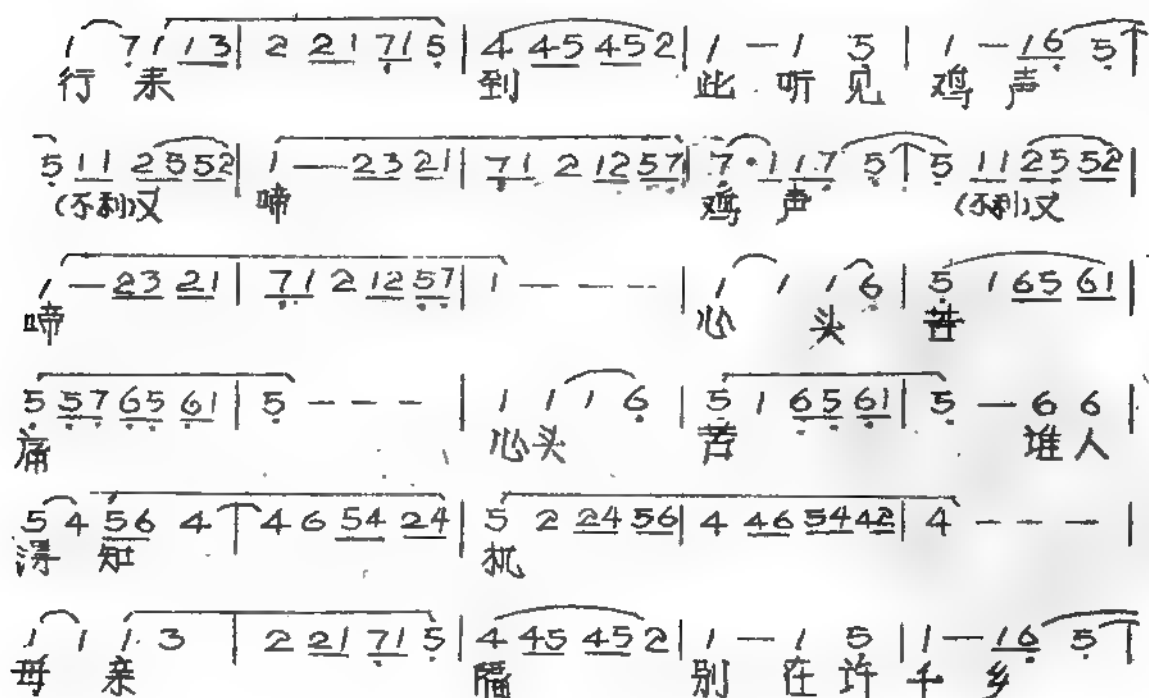 1 7 1 1 3 | 2 2 1 7 1 5 | 4 4 5 4 5 2 | 1 — 1 5 | 1 — 1 6 5 |
行 来 到 此 听 见 鸡 声
5 1 1 2 5 5 2 | 1 — 2 3 2 1 | 7 1 2 1 2 5 7 | 7 · 1 1 7 5 | 5 1 1 2 5 5 2 |
(不利)又 啼 鸡 声 (不利)又
1 — 2 3 2 1 | 7 1 2 1 2 5 7 | 1 - - - | 1 1 1 6 | 5 1 6 5 6 1 |
啼 心 头 苦
5 5 7 6 5 6 1 | 5 - - - | 1 1 1 6 | 5 1 6 5 6 1 | 5 — 6 6 |
痛 心头 苦 谁人
5 4 5 6 4 | 4 6 5 4 2 4 | 5 2 2 4 5 6 | 4 4 6 5 4 4 2 | 4 - - - |
知 机
1 1 1 3 | 2 2 1 7 1 5 | 4 4 5 4 5 2 | 1 — 1 5 | 1 — 1 6 5 |
母 亲 隔 别 在 许 乡